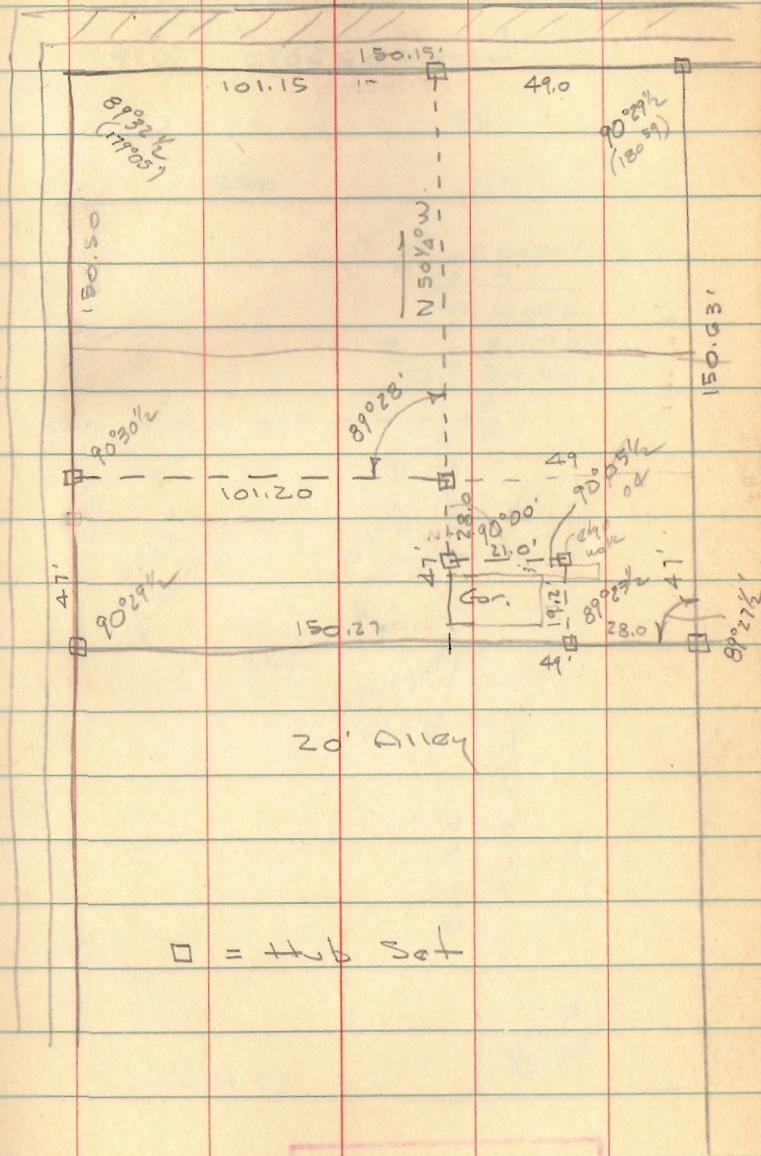 150.15'
101.15
49.0
89°32½
(179°05')
90°29½
(180 59)
150.50
N 50¼°W
150.63'
89°28'
90°30½
101.20
49
90°05½
04
28.0
90°00'
21.0'
47'
47'
47'
Gar.
19.2'
89°25½
28.0
89°27½'
90°29½
150.27
49'
20' Alley
□ = Hub Set